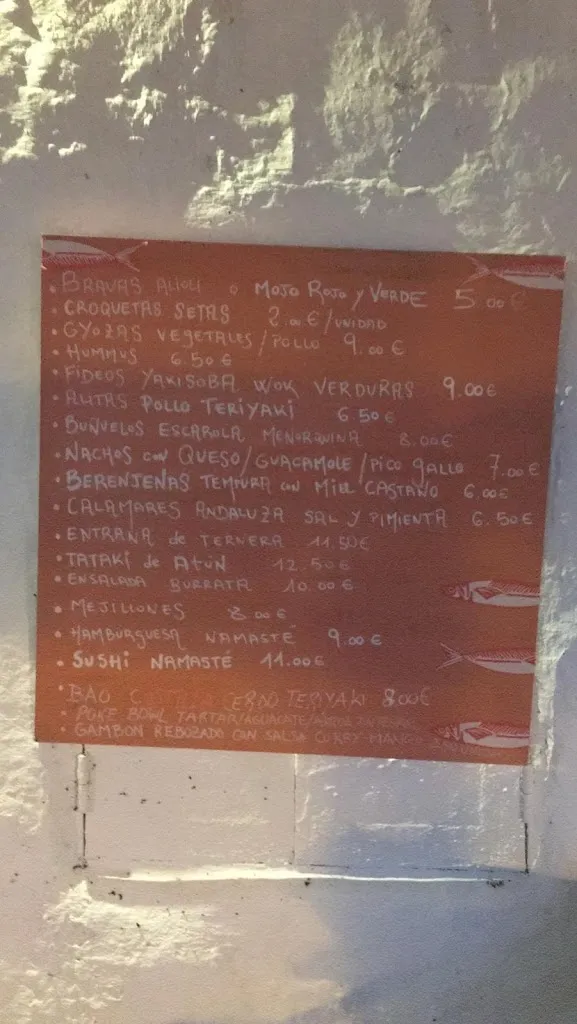 • BRAVAS ALIOLI o MOJO ROJO y VERDE 5.00€
• CROQUETAS SETAS 2.00€/UNIDAD
• GYOZAS VEGETALES/POLLO 9.00€
• HUMMUS 6.50€
• FIDEOS YAKISOBA WOK VERDURAS 9.00€
• ALITAS POLLO TERIYAKI 6.50€
• BUÑUELOS ESCAROLA MENORQUINA 8.00€
• NACHOS con QUESO/GUACAMOLE/PICO GALLO 7.00€
• BERENJENAS TEMPURA con MIEL CASTAÑO 6.00€
• CALAMARES ANDALUZA SAL Y PIMIENTA 6.50€
• ENTRAÑA de TERNERA 11.50€
• TATAKI de ATÚN 12.50€
• ENSALADA BURRATA 10.00€
• MEJILLONES 8.00€
• HAMBURGUESA NAMASTÉ 9.00€
• SUSHI NAMASTÉ 11.00€
• BAO CERDO TERIYAKI 8.00€
• POKE BOWL TARTAR/AGUACATE/
• GAMBON REBOZADO CON SALSA CURRY-MANGO